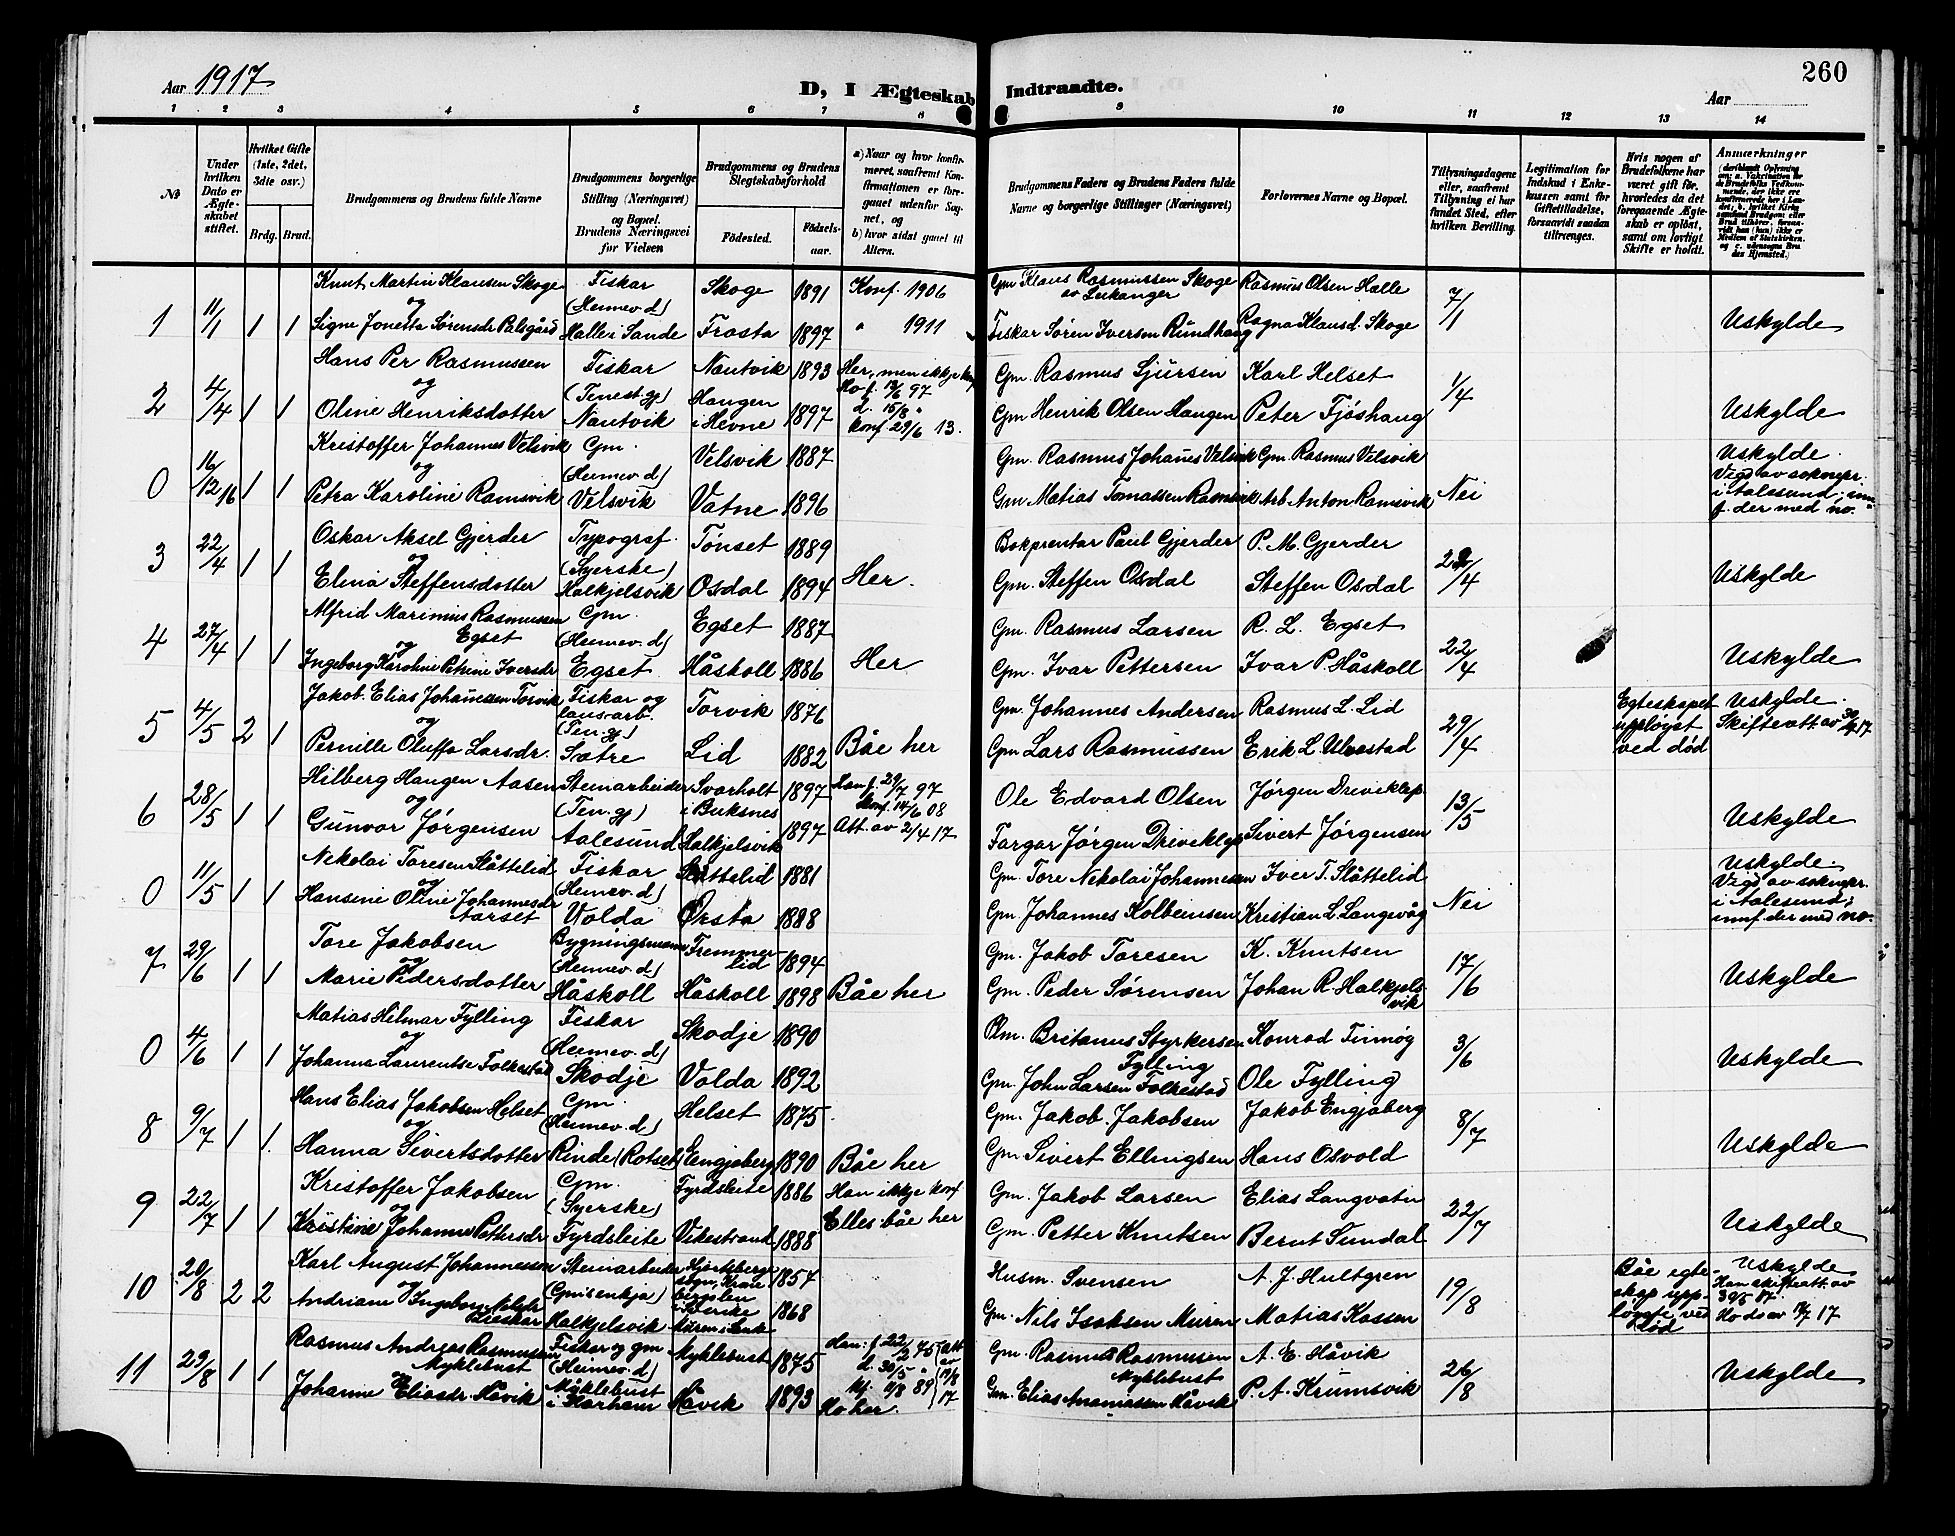 Aar 1917
D, I Ægteskab Indtraadte.
260
Aar
1 2 3 4 5 6 7 8 9 10 11 12 13 14
No
Under hvilken Dato er Ægteskabet stiftet.
Hvilket Gifte (1ste, 2det, 3die osv.)
Brdg. Brud.
Brudgommens og Brudens fulde Navne
Brudgommens borgerlige Stilling (Næringsvei) og Bopæl. Brudens Næringsvei før Vielsen
Brudgommens og Brudens Slegtskabsforhold
Födested.
Födselsaar.
a) Naar og hvor konfirmeret, saafremt Konfirmationen er foregaaet udenfor Sognet, og
b) hvor sidst gaaet til Alters.
Brudgommens Faders og Brudens Faders fulde Navne og borgerlige Stillinger (Næringsvei)
Forlovernes Navne og Bopæl.
Tillysningsdagene eller, saafremt Tillysning ei har fundet Sted, efter hvilken Bevilling.
Legitimation for Indskud i Enkekassen samt for Giftetilladelse, forsaavidt saadan tiltrænges.
Hvis nogen af Brudefolkene har været gift før, hvorledes da det foregaaende Ægteskab er opløst, samt om lovligt Skifte er holdt.
Anmærkninger
1 11/1 1 1 Knut Martin Klausen Skoge og Signe Jonetta Sørensdr Palsgård Fiskar (Heimev. d) Halle i Sande Skoge 1891 Frosta 1897 Konf. 1906 " 1911 Gm Klaus Rasmussen Skoge av Leikanger Fiskar Søren Iversen Rundhaug Rasmus Olsen Halle Ragna Klausd. Skoge 7/1 Uskylde
2 4/4 1 1 Hans Per Rasmussen og Oline Henriksdotter Fiskar (Tenest.gj) Nautvik Nautvik 1893 Haugen i Hevne 1897 Her, men ikkje konf Ho f. 12/6 97 d. 15/8 " konf 29/6 13. Gm. Rasmus Sjursen Gm Henrik Olsen Haugen Karl Helset Peter Fjøshaug 1/4 Uskylde
0 16/12 16 1 1 Kristoffer Johannes Velsvik og Petra Karoline Ramsvik Gm. (Heimev. d) Velsvik Velsvik 1887 Vatne 1896 Gm. Rasmus Johanes Velsvik Gm Matias Tomassen Ramsvik Gm. Rasmus Velsvik Arb. Anton Ramsvik Nei Uskylde. Vigd av soknepr. i Aalesund; innf. der med no.
3 22/4 1 1 Oskar Aksel Gjerder og Elina Steffensdotter Typograf. (Syerske) Halkjelsvik Tønset 1889 Osdal 1894 Her. Bokprentar Paul Gjerder Gm. Steffen Osdal P. M. Gjerder Steffen Osdal 22/4 Uskylde
4 27/4 1 1 Alfrid Marinius Rasmussen Egset og Ingeborg Karoline Petrine Iversdr Gm. (Heimev. d) Egset Egset 1887 Håskoll 1886 Her Gm. Rasmus Larsen Gm. Ivar Pettersen R. L. Egset Ivar P. Håskoll 22/4 Uskylde
5 4/5 2 1 Jakob Elias Johanessen Torvik og Pernille Oluffa Larsdr. Fiskar og lausarb. (Ten.gj) Sætre Torvik 1876 Lid 1882 Båe her Gm. Johannes Andersen Gm Lars Rasmussen Rasmus L. Lid Erik L. Ulvestad 29/4 Egteskapet uppløyst ved død Uskylde. Skifteatt. av 30/4 17
6 28/5 1 1 Hilberg Haugen Aasen og Gunvor Jørgensen Steinarbeider (Ten.gj) Aalesund Svarholt i Buksnes 1897 Halkjelsvik 1897 Han f. 29/7 97 konf. 14/6 08 Att. av 2/4 17 Ole Edvard Olsen Fargar Jørgen Driveklep Jørgen Driveklep Sivert Jørgensen 13/5 Uskylde
0 11/5 1 1 Nekolai Toresen Slåttelid og Hansine Oline Johannesdr Aarset Fiskar (Heimev. d) Volda Slåttelid 1881 Ørsta 1888 Gm. Tore Nikolai Johannesen Gm. Johannes Kolbeinsen Iver T. Slåttelid Kristian L Langevåg Nei Uskylde. Vigd av soknepr. i Aalesund; innf. der med no.
7 29/6 1 1 Tore Jakobsen og Marie Pedersdotter Bygningsmann (Heimev. d) Håskoll Fremmerlid 1894 Håskoll 1898 Båe her Gm. Jakob Toresen Gm. Peder Sørensen K. Knutsen Johan R. Halkjelsvik 17/6 Uskylde
0 4/6 1 1 Matias Hilmar Fylling og Johanna Laurentse Folkestad Fiskar (Heimev. d) Skodje Skodje 1890 Volda 1892 Plm. Britanus Styrkersen Fylling Gm. John Larsen Folkestad Konrad Finnøg Ole Fylling 3/6 Uskylde
8 9/7 1 1. Hans Elias Jakobsen Helset og Hanna Sivertsdotter Gm. (Heimev. d) Rinde (Rotset) Helset 1875 Engjaberg 1890 Båe her Gm. Jakob Jakobsen Gm Sivert Ellingsen Jakob Engjaberg Hans Osvold 8/7 Uskylde
9 22/7 1 1 Kristoffer Jakobsen og Kristine Johanne Pettersdr Gm. (Syerske) Fyrdsleite Fyrdsleite 1886 Vikestrand 1888 Han ikkje konf Elles båe her Gm. Jakob Larsen Gm. Petter Knutsen Elias Langvatn Bernt Sundal 22/7 Uskylde
10 20/8 2 2 Karl August Johannessen og Andriane Ingeborg Steinarbeider Halkjelsvik 1854 1868 Husm. Svensen Gm. Nils Isaksen Muren A. J. Hultgren Matias Kassen 19/8 Båe egteskap uppløyste ved død Uskylde Han skifteatt. av
11 29/8 1 1 Rasmus Andreas Rasmussen Myklebust og Johanne Eliasdr. Håvik Fisker og gm (Heimev. d) Myklebust i Harham Myklebust 1875 Håvik 1893 Han: f. 22/2 75 d. 30/5 " kf. 89 att av 17 Ho her. Gm. Rasmus Rasmussen Myklebust Gm. Elias Ananiassen Håvik A. E. Håvik P. A. Krumsvik 26/8 Uskylde